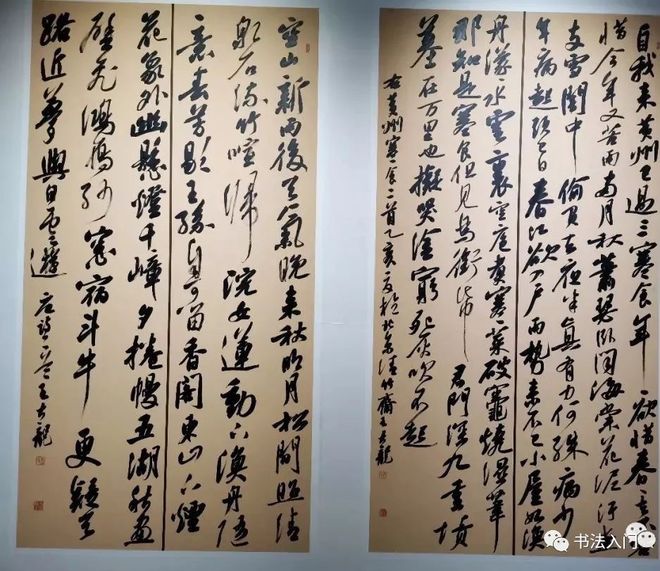 自我来黄州已过三寒食年〻欲惜春〻去
惜今年又苦雨两月秋萧瑟卧闻海棠花泥污燕
支雪闇中偷负去夜半真有力何殊病少
年病起头已白春江欲入户雨势来不已小屋如渔
舟濛〻水雲裏空庖煮寒菜破竈燒湿葦
那知是寒食但见烏銜帋君門深九重墳
墓在万里也擬哭塗窮死灰吹不起
右黄州寒食二首乙亥夏於北京清竹齋王大龍
空山新雨後天氣晚来秋明月松間照清
泉石流竹喧歸浣女蓮動下漁舟随
意春芳歇王孫自可留香閣東山下煙
花象外幽懸燈千嶂夕捲幔五湖秋畫
壁餘鴻鴈紗窗宿斗牛更疑天
路近夢與白雲遊 王大龍
书法入门